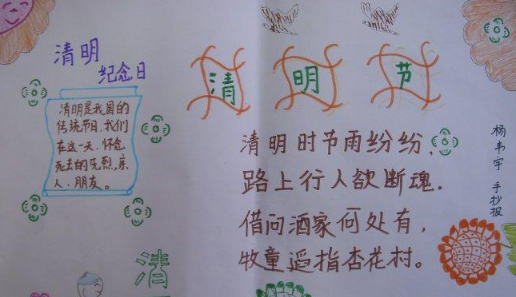 清明
纪念日
清明是我国的
传统节日.我们
在这一天.怀念
死去的先烈,亲
人.朋友。
清明节
清明时节雨纷纷,
路上行人欲断魂.
借问酒家何处有,
牧童遥指杏花村。
杨韦宇 手抄报
清